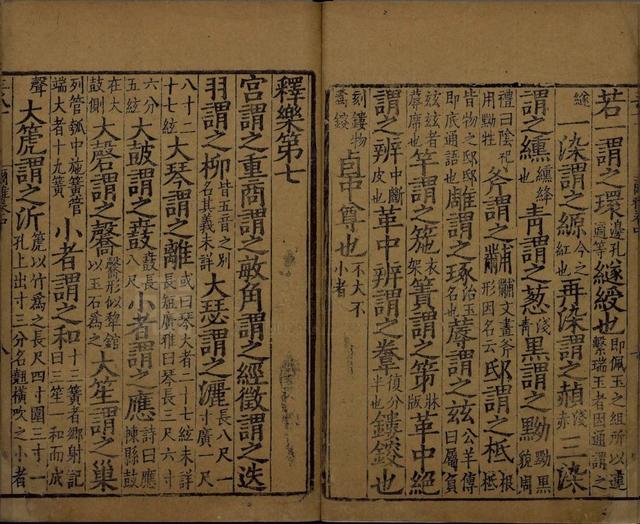 若一謂之環邊孔適等繸綬也即佩玉之組所以連繫瑞玉者因通謂之
繸一染謂之縓今之紅也再染謂之赬淺赤三染
謂之纁纁絳青謂之葱淺青黑謂之黝黝黑貌周
禮曰陰祀用黝牲斧謂之黼黼文畫斧形因名云邸謂之柢根柢
皆物之邸邸即底通語也雕謂之琢治玉也蓐謂之茲公羊傳曰屬負
茲茲者蓐席也竿謂之箷衣架簀謂之笫牀版革中絕
謂之辨中斷皮也革中辨謂之韏復分半也鏤鋑也
刻鏤物為鋑卣中尊也不大不小者
釋樂第七
宮謂之重商謂之敏角謂之經徵謂之迭
羽謂之柳皆五音之別名其義未詳大瑟謂之灑長八尺一寸廣一尺
八寸二十七絃大琴謂之離或曰琴大者二十七絃未詳長短廣雅曰琴長三尺六寸
六分五絃大鼓謂之鼖鼖長八尺小者謂之應詩曰應陳縣鼓
在大鼓側大磬謂之毊毊形似犁錧以玉石為之大笙謂之巢
列管瓠中施簧管端大者十九簧小者謂之和十三簧者鄉射記曰三笙一和而成
聲大箎謂之沂箎以竹為之長尺四寸圍三寸一孔上出寸三分名翹橫吹之小者